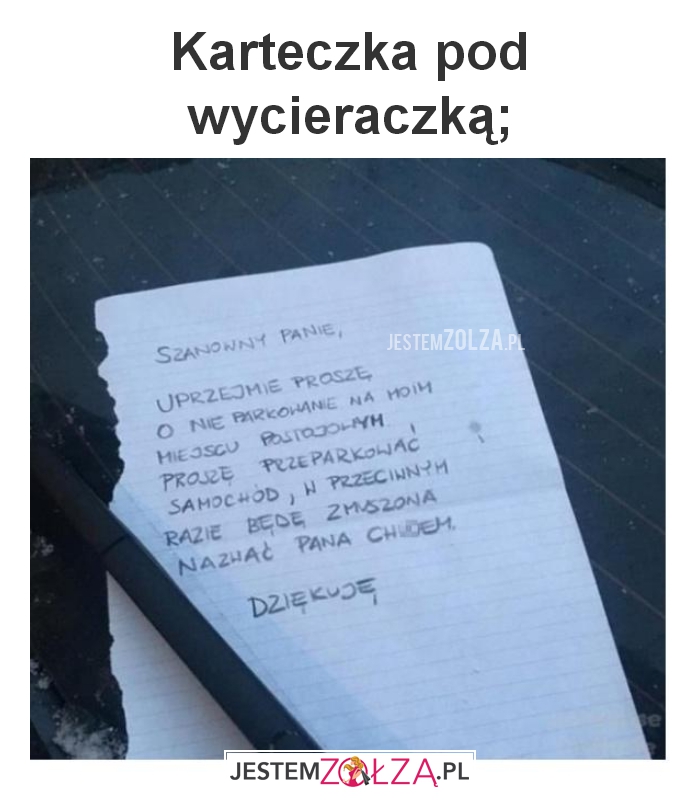 Karteczka pod
wycieraczką;
JESTEMZOLZA.PL
SZANOWNY PANIE,
UPRZEJMIE PROSZĘ
O NIE PARKOWANIE NA MOIM
MIEJSCU POSTOJOWYM. !
PROSZĘ PRZEPARKOWAĆ
SAMOCHÓD, W PRZECIWNYM
RAZIE BĘDĘ ZMUSZONA
NAZWAĆ PANA
DZIĘKUJĘ
JESTEMZOŁZĄ.PL